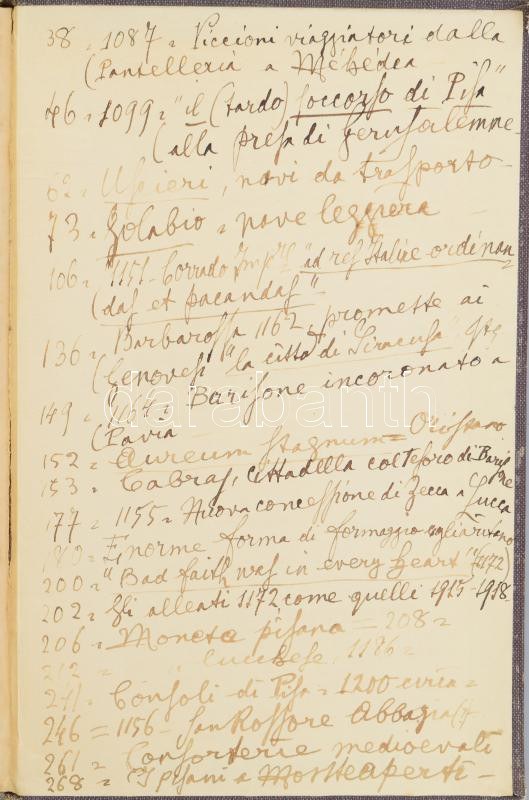 38 = 1087 = Piccioni viaggiatori dalla
(Pantelleria a Mehedea
46 = 1099 = "il (tardo) soccorso di Pisa"
(alla presa di Gerusalemme
62 = Uscieri, navi da trasporto
73 = Golabio = nave leggera
106 = "1151 - Corrado "ad res Italiae ordinan
(das et pacandas"
136 = Barbarossa 1162, promette ai
(Genovesi "la città di Siracusa"
149 = 1164 = Barisone incoronato a
(Pavia
152 = Aureum Stagnum = Oristano
153 = Cabras, cittadella col Tesoro di
177 = 1155 = Nuova concessione di Zecca a Lucca
180 = Enorme forma di formaggio
200 = "Bad faith was in every heart" (1172)
202 = Gli alleati 1172 come quelli 1915-1918
206 = Moneta pisana = 208 =
212 = " Lucchese, 1186 =
241 = Consoli di Pisa = 1200 circa =
246 = 1156 - San Rossore Abbazia
261 = Consorterie medioevali
268 = I pisani a Monteaperti -
darabanth